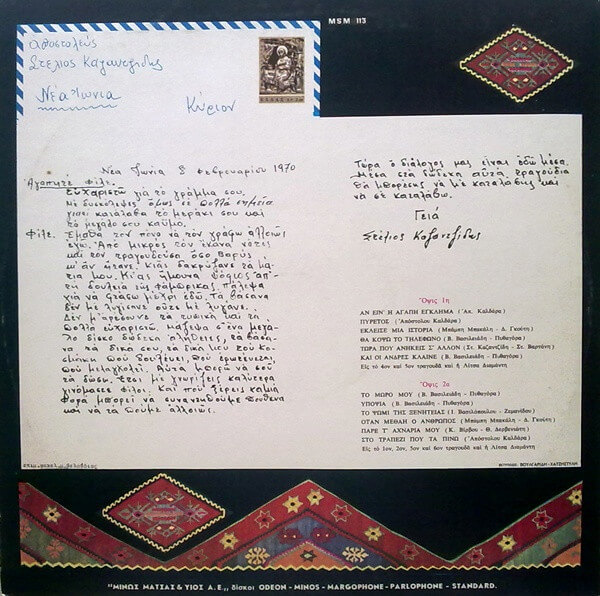 MSM 113
αποστολεύς
Στέλιος Καζαντζίδης
Νέα Ιωνία
Κύριον
Νέα Ιωνία 8 Φεβρουαρίου 1970
Αγαπητέ φίλε.
Ευχαριστώ για το γράμμα σου.
Με δυσκόλεψες όμως σε πολλά σημεία
γιατί κατάλαβα το μεράκι σου και
το μεγάλο σου καϋμό.
Φίλε. Έμαθα τον πόνο να τον γράφω αλλοιώς
εγώ. Από μικρός τον έκανα νότες
και τον τραγουδούσα όσο βαρύς
κι' αν ήτανε. Κι ας δακρύζανε τα μά-
τια μου. Κι' ας ήμουνα ψόφιος απ'
τη δουλειά της φάμπρικας. Πάλεψα
για να φτάσω μέχρι εδώ. Τα βάσανα
δεν με λυγίσανε ούτε με λύγανε.
Δεν μ' αρέσουνε τα τυπικά και τα
πολλά ευχαριστώ. Μάζεψα σ' ένα μεγά-
λο δίσκο δώδεκα αλήθειες, τα βάσα-
να τα δικά σου, τα δικά μου του Κο-
σμάκη που δουλεύει, που ερωτεύεται,
που μελαγχολεί. Αυτά μπορώ να σου
τα δώσω. Έτσι με γνωρίζεις καλύτερα
γινόμαστε φίλοι. Και που ξέρεις καμιά
φορά μπορεί να συναντηθούμε πουθενά
και να τα πούμε αλλοιώς.
Τώρα ο διάλογος μας είναι εδώ μέσα.
Μέσα στα δώδεκα αυτά τραγούδια
θα μπορέσης να με καταλάβης και
να σε καταλάβω.
Γειά
Στέλιος Καζαντζίδης
Όψις 1η
ΑΝ ΕΙΝ' Η ΑΓΑΠΗ ΕΓΚΛΗΜΑ ('Απ. Καλδάρα)
ΠΥΡΕΤΟΣ ('Απόστολου Καλδάρα)
ΕΚΛΕΙΣΕ ΜΙΑ ΙΣΤΟΡΙΑ (Μπάμπη Μπακάλη - Δ. Γκούτη)
ΘΑ ΚΟΨΩ ΤΟ ΤΗΛΕΦΩΝΟ (Β. Βασιλειάδη - Πυθαγόρα)
ΤΩΡΑ ΠΟΥ ΑΝΗΚΕΙΣ Σ' ΑΛΛΟΝ (Στ. Καζαντζίδη - Σε. Βαρτάνη)
ΚΑΙ ΟΙ ΑΝΔΡΕΣ ΚΛΑΙΝΕ (Β. Βασιλειάδη - Πυθαγόρα)
Εἰς τό 4ον καί 5ον τραγουδᾶ καί ἡ Λίτσα Διαμάντη
Όψις 2α
ΤΟ ΜΩΡΟ ΜΟΥ (Β. Βασιλειάδη - Πυθαγόρα)
ΥΠΟΨΙΑ (Β. Βασιλειάδη - Πυθαγόρα)
ΤΟ ΨΩΜΙ ΤΗΣ ΞΕΝΗΤΕΙΑΣ (Ι. Βασιλόπουλου - Ζεμανίδου)
ΟΤΑΝ ΜΕΘΑΗ Ο ΑΝΘΡΩΠΟΣ (Μπάμπη Μπακάλη - Δ. Γκούτη)
ΠΑΡΕ Τ' ΑΧΝΑΡΙΑ ΜΟΥ (Κ. Βίρβου - Θ. Δερβενιώτη)
ΣΤΟ ΤΡΑΠΕΖΙ ΠΟΥ ΤΑ ΠΙΝΩ ('Απόστολου Καλδάρα)
Εἰς τό 1ον, 2ον, 5ον καί 6ον τραγουδᾶ καί ἡ Λίτσα Διαμάντη
"ΜΙΝΩΣ ΜΑΤΣΑΣ & ΥΙΟΣ Α.Ε.,, δίσκοι ODEON - MINOS - MARGOPHONE - PARLOPHONE - STANDARD.